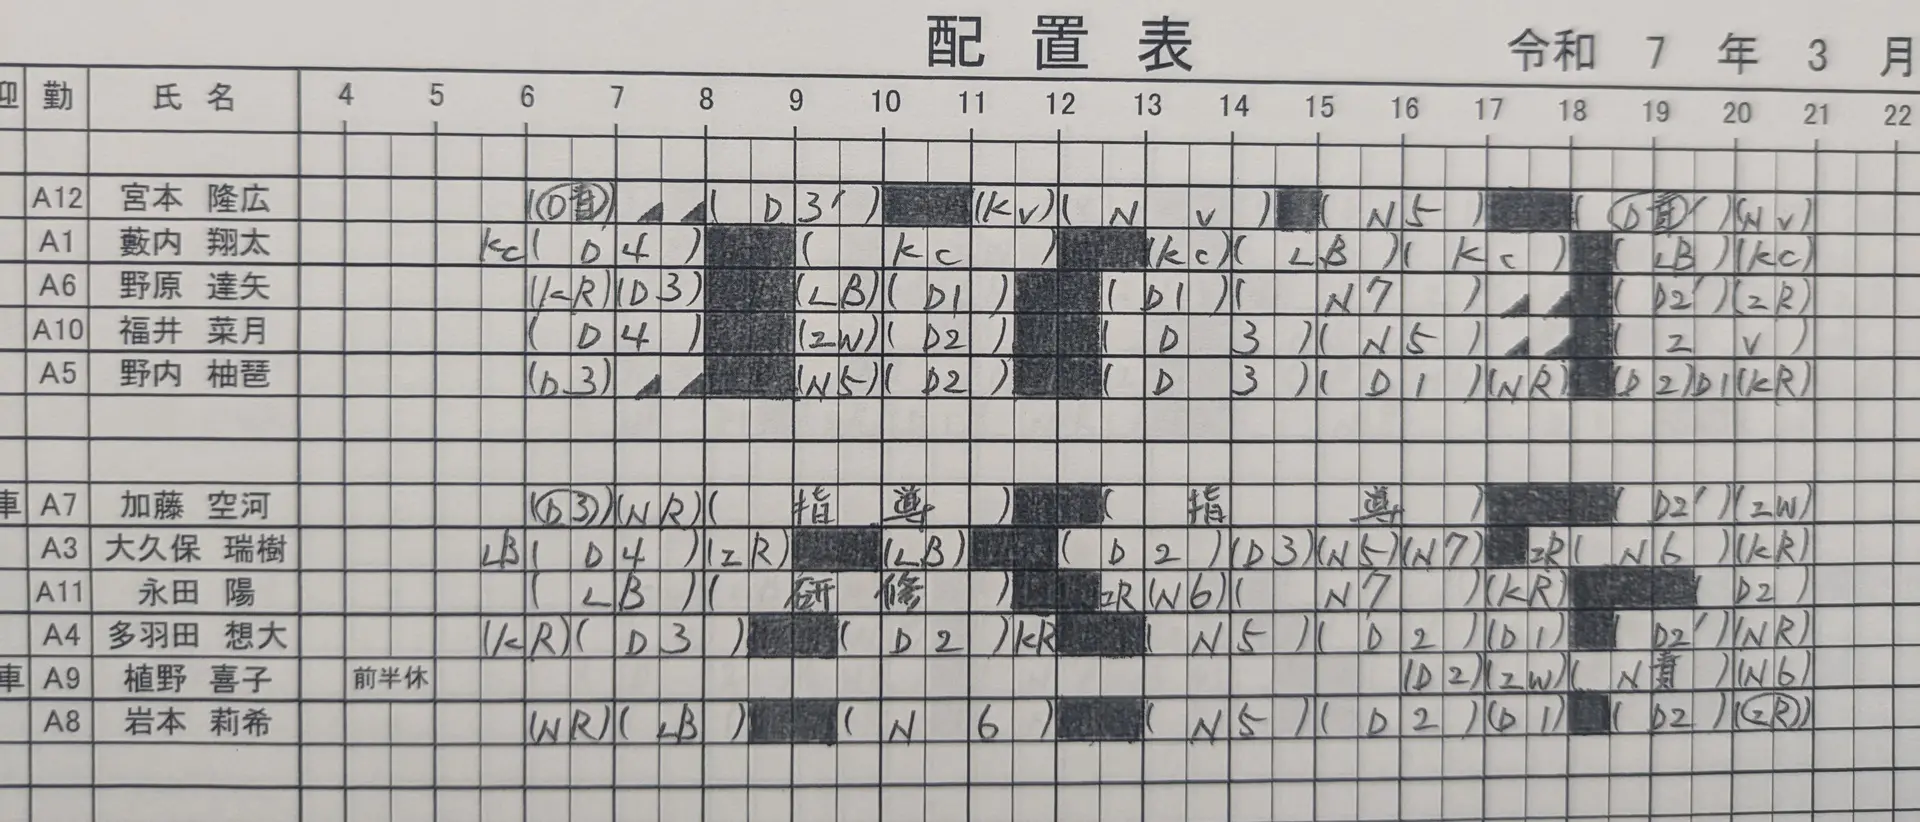 配置表 令和 7 年 3 月
迎 勤 氏名 4 5 6 7 8 9 10 11 12 13 14 15 16 17 18 19 20 21 22
A12 宮本 隆広 (D責) ( D 3' ) (Kv) ( N v ) ( N 5 ) ( D責' ) (Nv)
A1 藪内 翔太 Kc ( D 4 ) ( Kc ) (Kc) ( LB ) ( Kc ) ( LB ) (Kc)
A6 野原 達矢 (KR) (D3) (LB) ( D1 ) ( D1 ) ( N7 ) ( D2' ) (ZR)
A10 福井 菜月 ( D 4 ) (ZW) ( D2 ) ( D 3 ) ( N 5 ) ( Z V )
A5 野内 柚琶 (D3) (N5) ( D2 ) ( D 3 ) ( D 1 ) (NR) (D2) D1 (KR)
車 A7 加藤 空河 (D3) (NR) ( 指 導 ) ( 指 導 ) ( D2' ) (ZW)
A3 大久保 瑞樹 LB ( D 4 ) (ZR) (LB) ( D 2 ) (D3) (N5) (N7) ZR ( N6 ) (KR)
A11 永田 陽 ( LB ) ( 研 修 ) ZR (N6) ( N7 ) (KR) ( D2 )
A4 多羽田 想大 (KR) ( D 3 ) ( D 2 ) KR ( N 5 ) ( D 2 ) (D1) ( D2' ) (NR)
車 A9 植野 喜子 前半休 (D2) (ZW) ( N責 ) (N6)
A8 岩本 莉希 (NR) ( LB ) ( N 6 ) ( N 5 ) ( D 2 ) (D1) ( D2 ) (ZR)